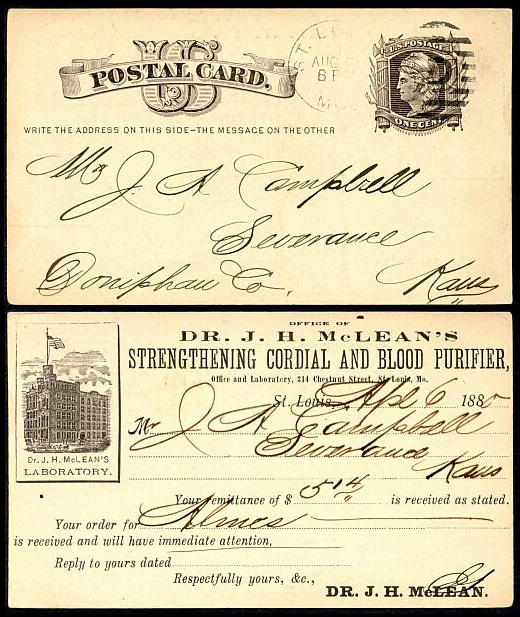 US
POSTAL CARD.
ST. L
AUG
6 PM
MO.
U.S. POSTAGE
ONE CENT
WRITE THE ADDRESS ON THIS SIDE–THE MESSAGE ON THE OTHER
Mr J. A. Campbell
Severance
Doniphan Co. Kans
OFFICE OF
DR. J. H. McLEAN'S
STRENGTHENING CORDIAL AND BLOOD PURIFIER,
Office and Laboratory, 314 Chestnut Street, St. Louis, Mo.
St. Louis, 6 188
Mr J A Campbell
Severance
Kans
Dr. J. H. McLEAN'S
LABORATORY.
Your remittance of $ 5 14 is received as stated.
Your order for Almcs
is received and will have immediate attention,
Reply to yours dated
Respectfully yours, &c.,
DR. J. H. McLEAN.